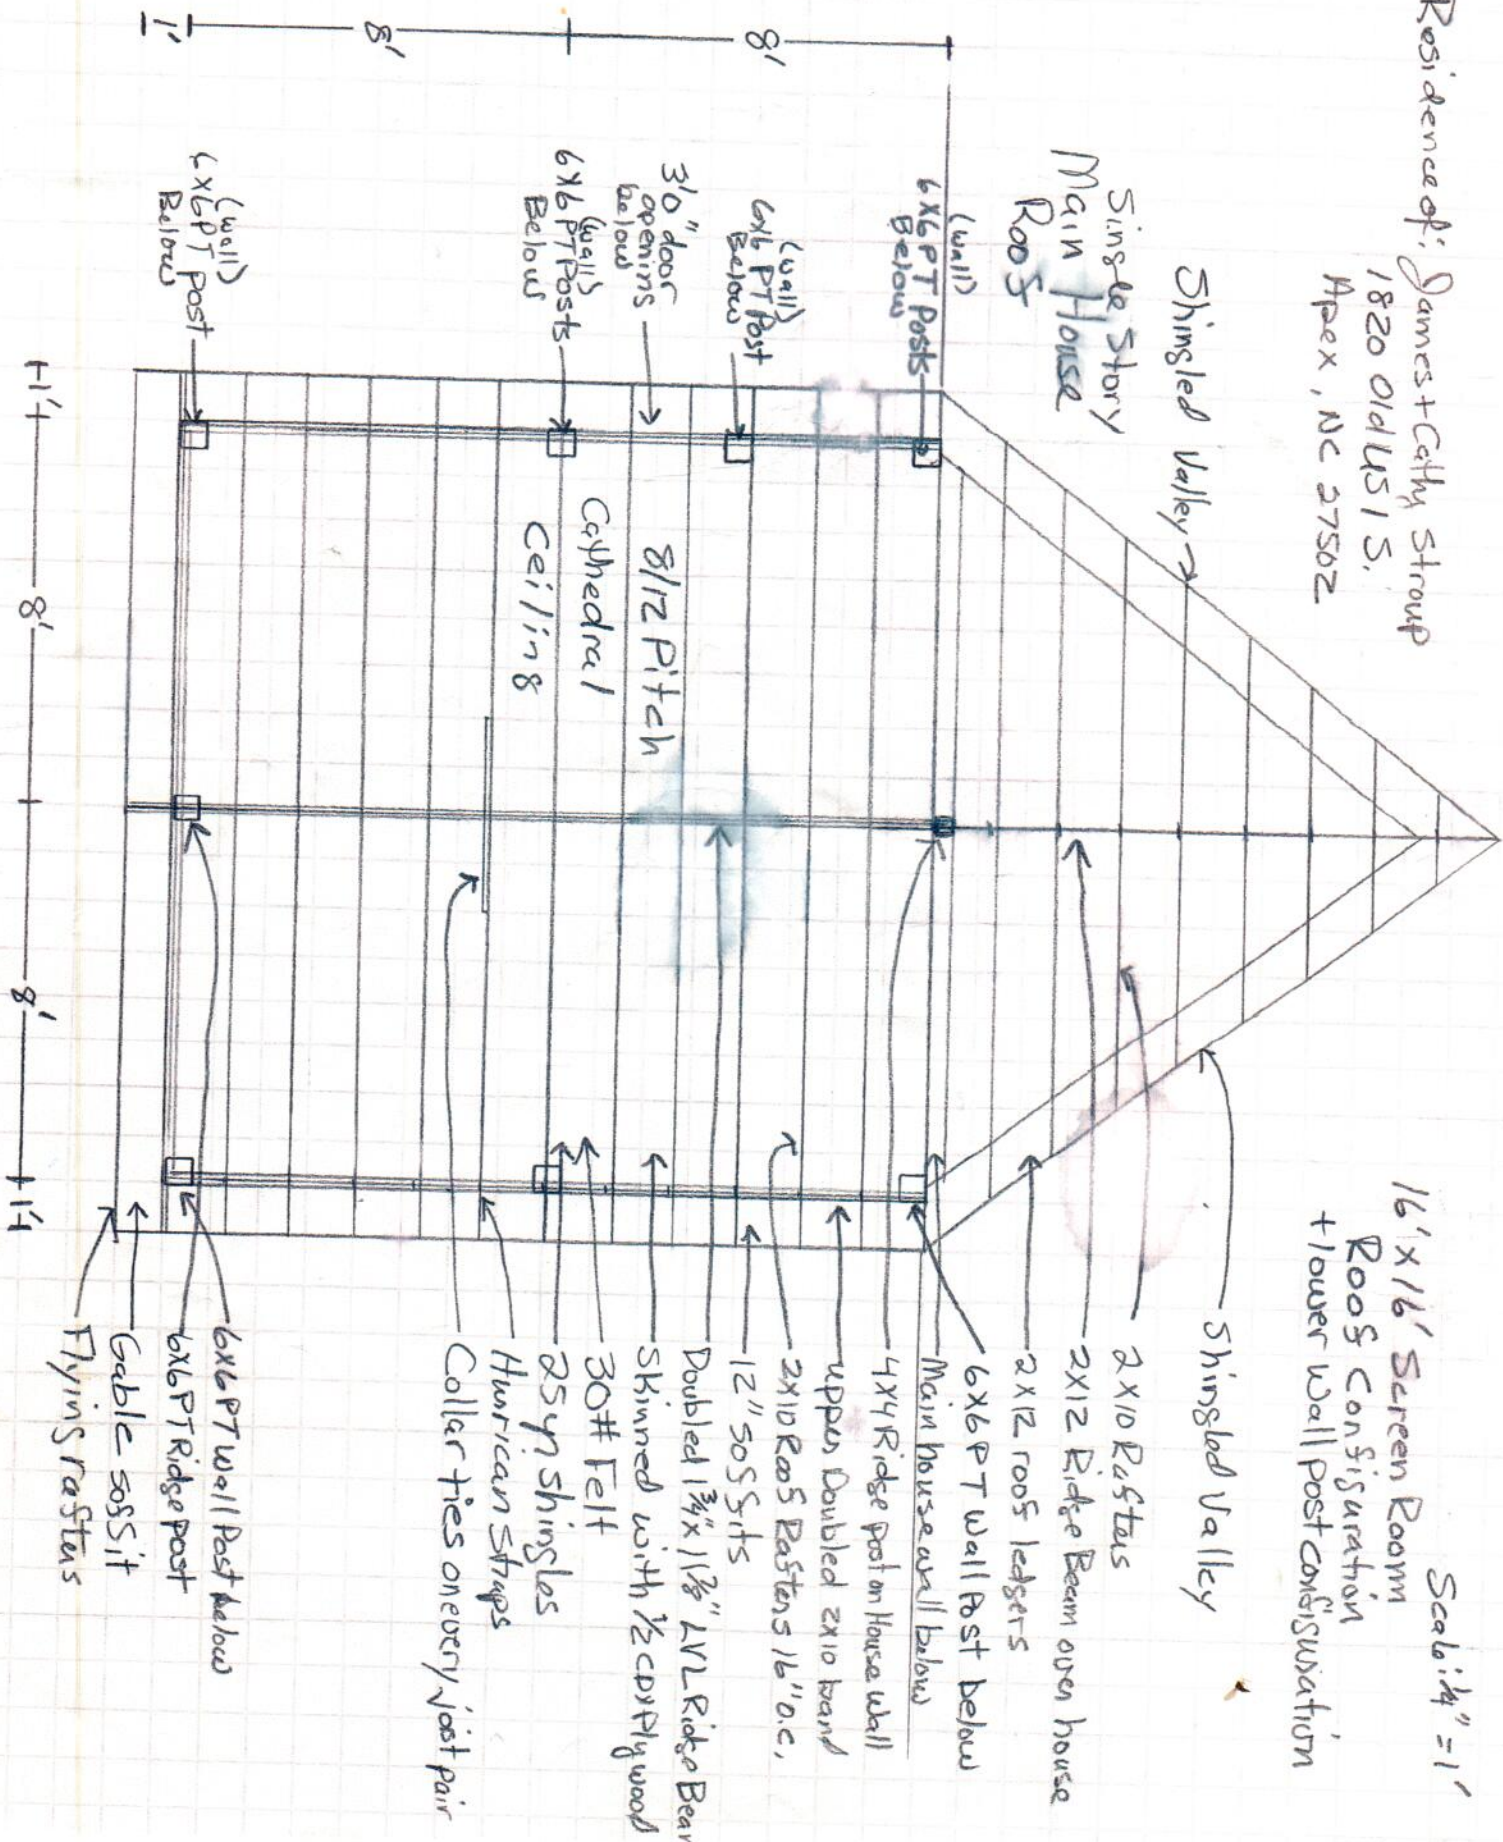 Residence of: James + Cathy Stroup
1820 Old US 1 S.
Apex, NC 27502
Scale: 1/4" = 1'
16' x 16' Screen Room
Roof Configuration
+ lower wall post configuration
Shingled Valley
Single Story
Main House
Roof
(wall)
6x6 PT Posts
Below
(wall)
6x6 PT Post
Below
3'0" door
opening
below
(wall)
6x6 PT Posts
Below
(wall)
6x6 PT Post
Below
8'
8'
1'
8/12 Pitch
Cathedral
Ceiling
Shingled Valley
2x10 Rafters
2x12 Ridge Beam over house
2x12 roof ledgers
6x6 PT Wall Post below
Main house wall below
4x4 Ridge post on House wall
upper Doubled 2x10 band
2x10 Roof Rafters 16" o.c.
12" soffits
Doubled 1 3/4" x 11 7/8" LVL Ridge Beam
Skinned with 1/2 CDX Plywood
30# Felt
25 yr shingles
Hurrican straps
Collar ties on every joist pair
6x6 PT wall Post below
6x6 PT Ridge post
Gable soffit
Flying rafters
1'
8'
8'
1'